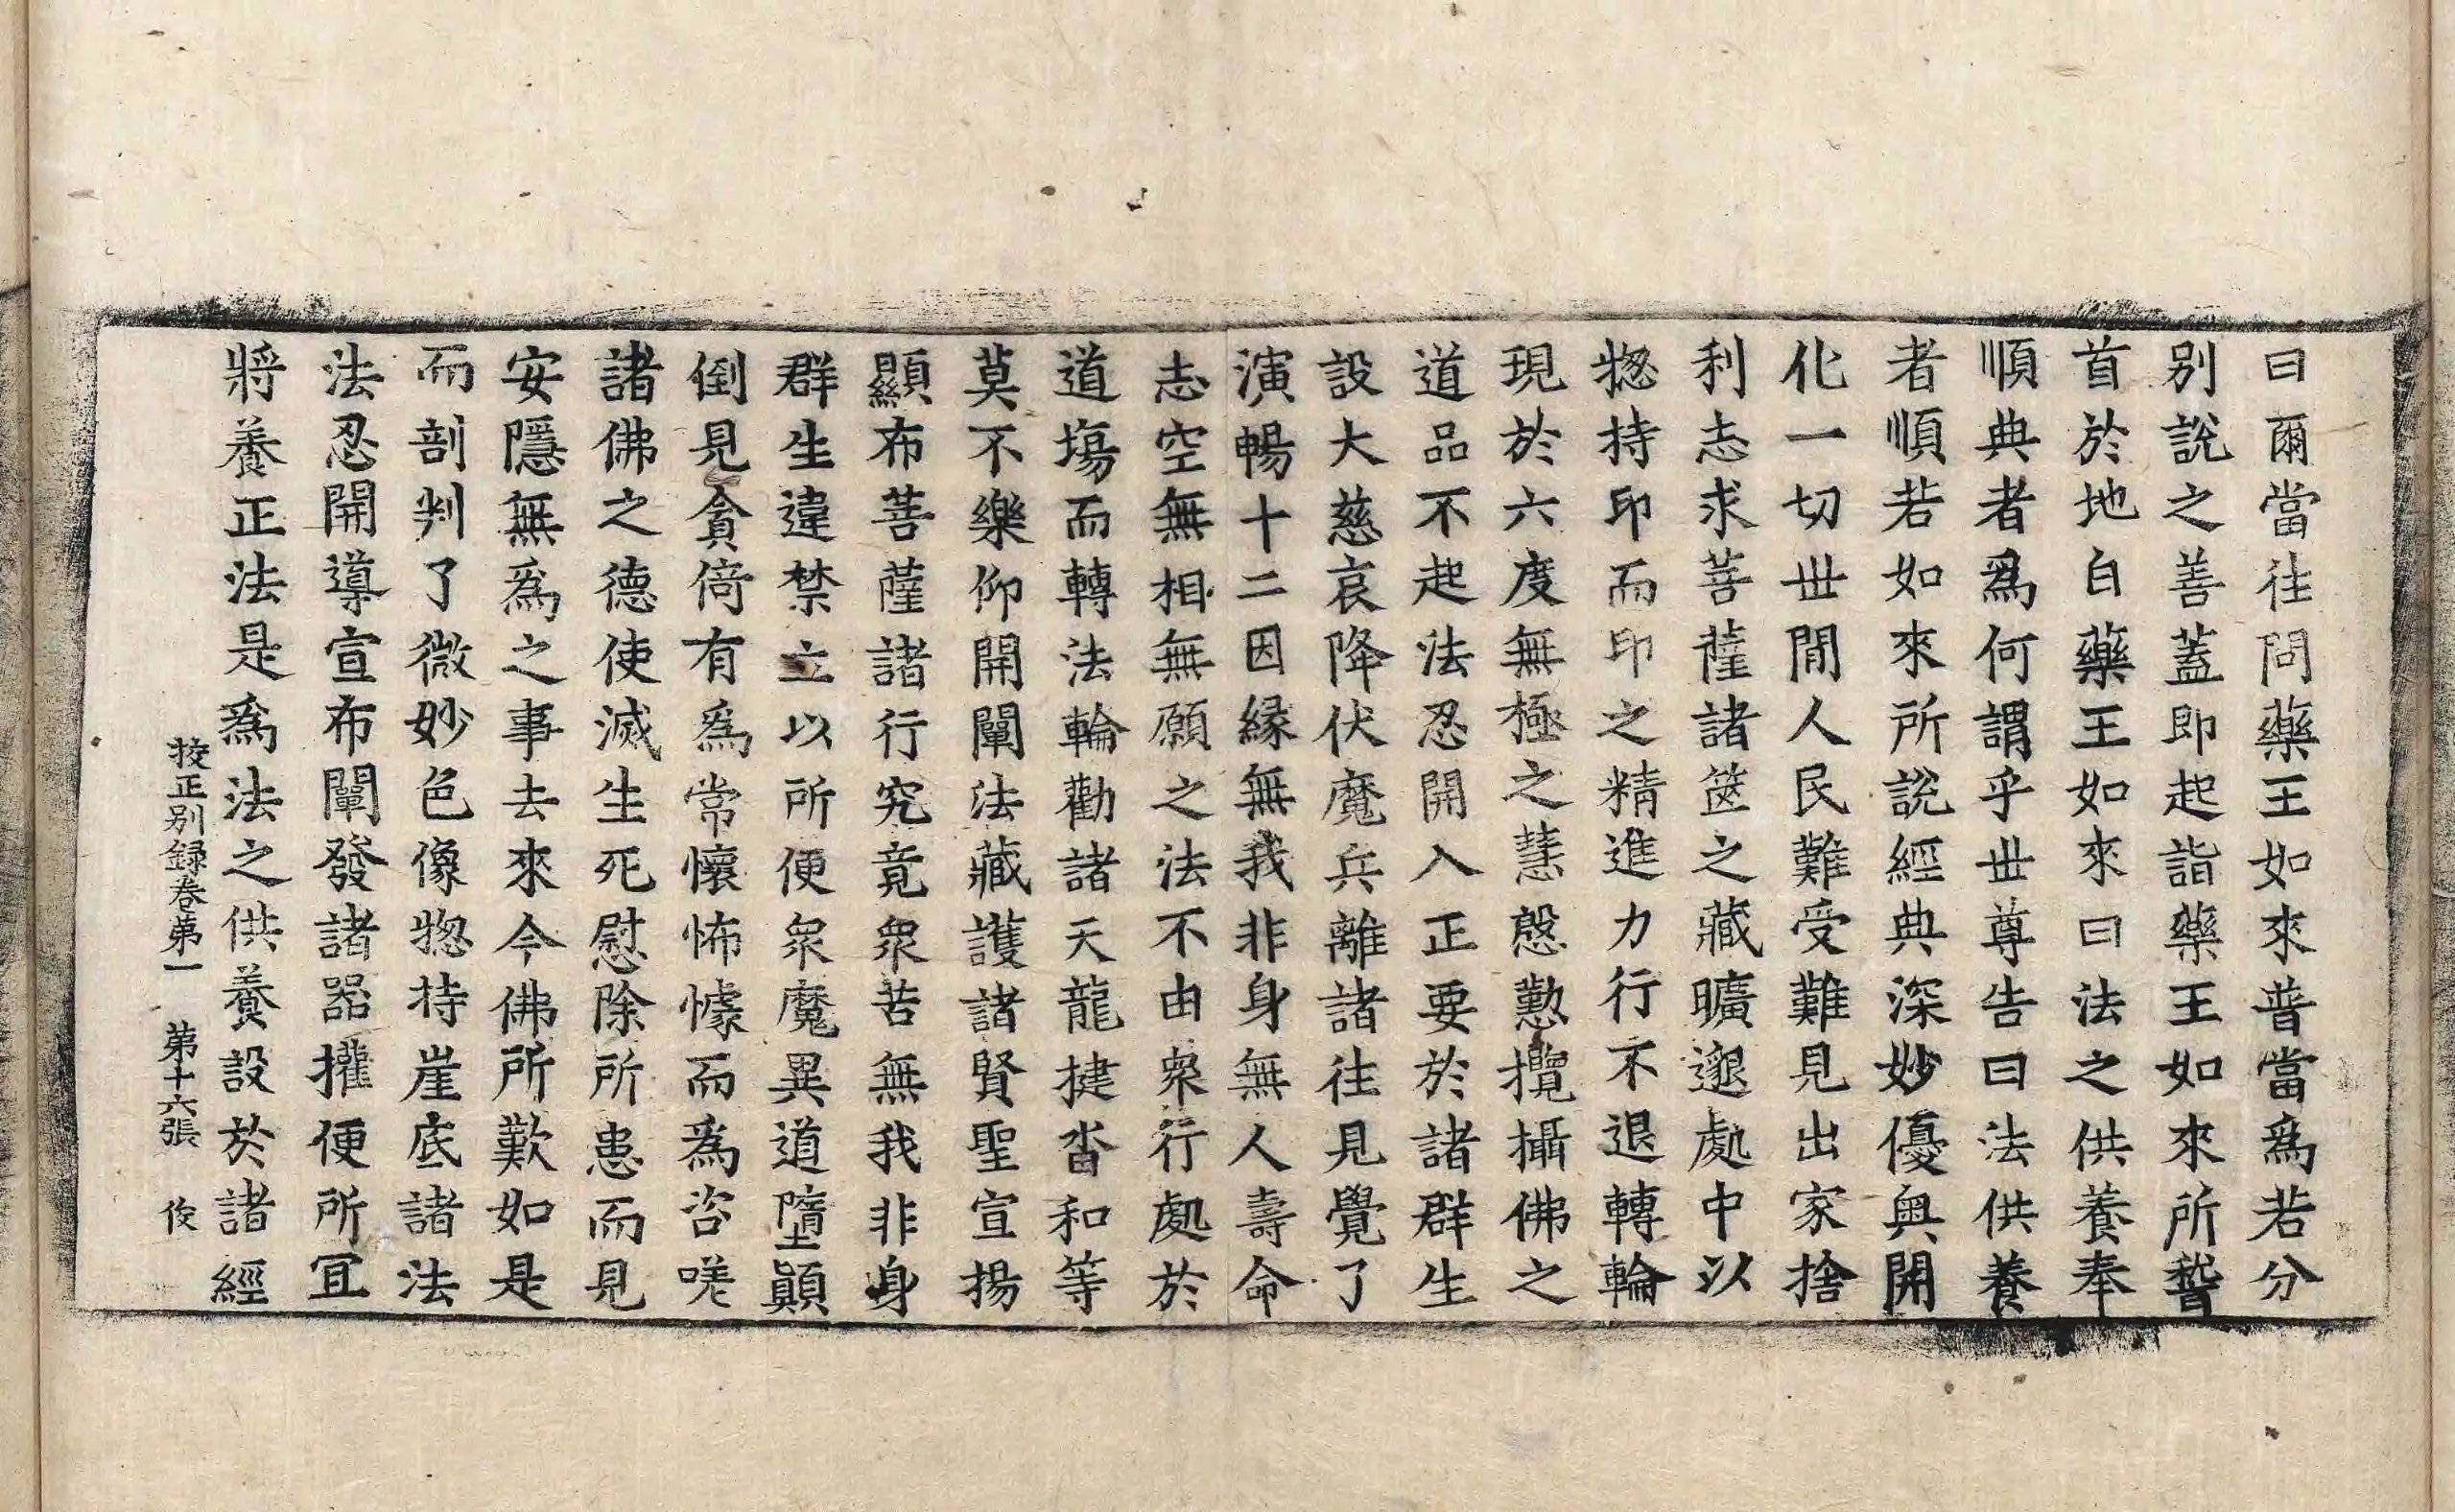 曰爾當往問藥王如來普當爲若分
別說之善蓋即起詣藥王如來所䭫
首於地白藥王如來曰法之供養奉
順典者爲何謂乎世尊告曰法供養
者順若如來所說經典深妙優奧開
化一切世閒人民難受難見出家捨
利志求菩薩諸篋之藏曠邈處中以
惣持印而印之精進力行不退轉輪
現於六度無極之慧慇懃攬攝佛之
道品不起法忍開入正要於諸群生
設大慈哀降伏魔兵離諸往見覺了
演暢十二因緣無我非身無人壽命
志空無相無願之法不由衆行處於
道塲而轉法輪勸諸天龍揵沓和等
莫不樂仰開闡法藏護諸賢聖宣揚
顯布菩薩諸行究竟衆苦無我非身
群生違禁立以所便衆魔異道墮顚
倒見貪倚有爲常懷怖懅而爲咨嗟
諸佛之德使滅生死慰除所患而見
安隱無爲之事去來今佛所歎如是
而剖判了微妙色像惣持崖底諸法
法忍開導宣布闡發諸器攉便所冝
將養正法是爲法之供養設於諸經
挍正別録卷苐一 苐十六張 俊